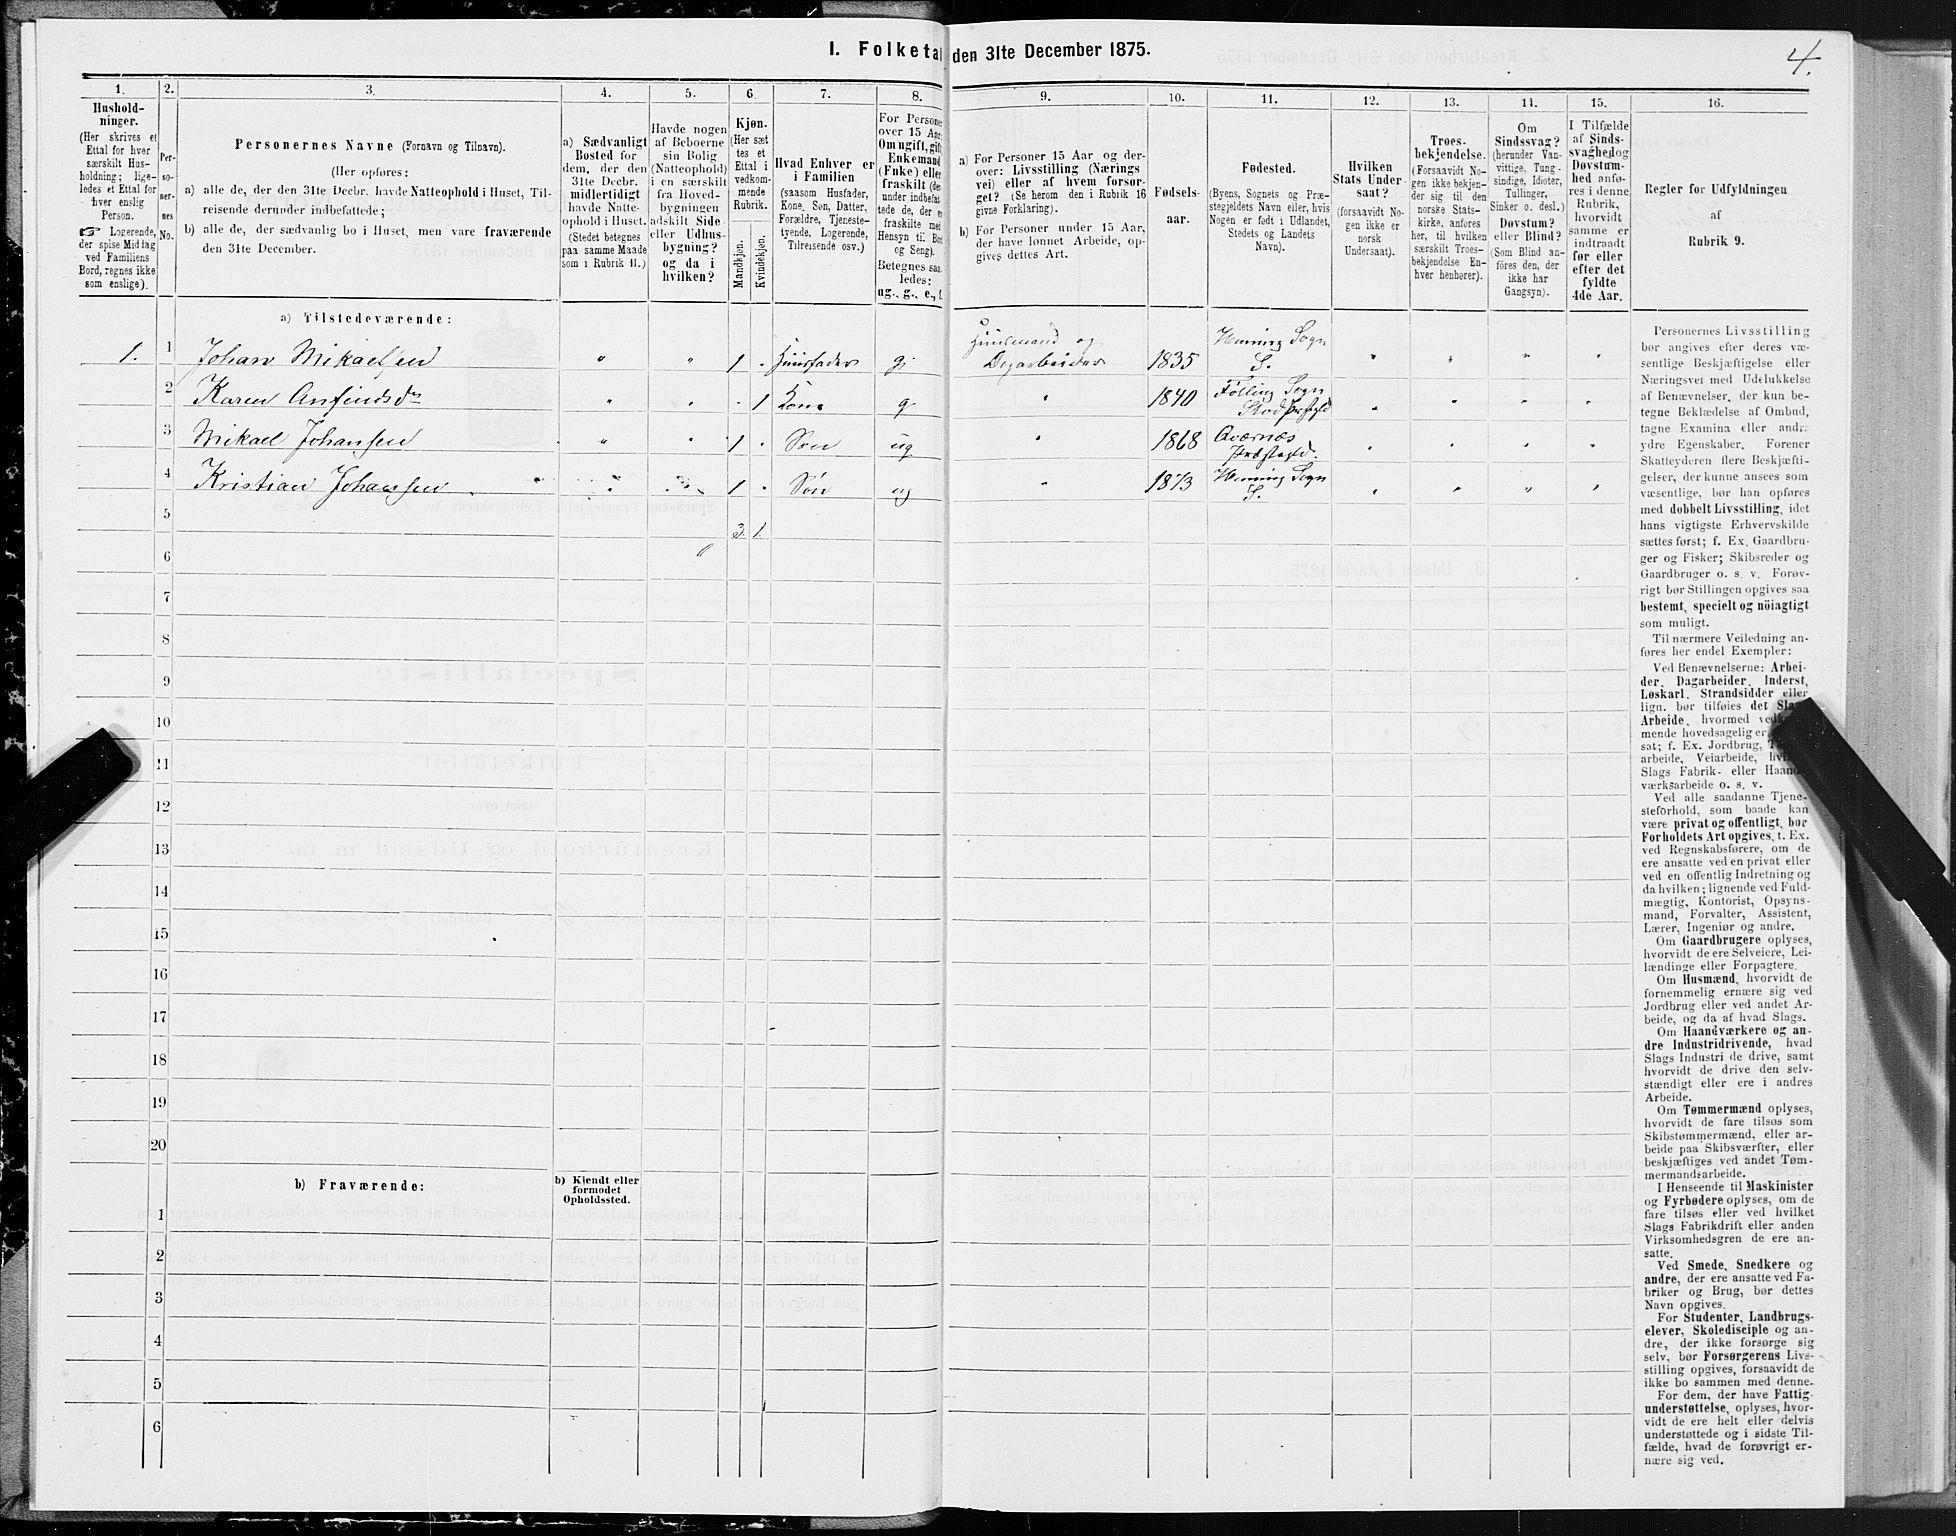 I. Folketal den 31te December 1875.
4.
1.
Hushold-
ninger.
(Her skrives et
Ettal for hver
særskilt Hus-
holdning; lige-
ledes et Ettal for
hver enslig
Person.
☞ Logerende,
der spise Middag
ved Familiens
Bord, regnes ikke
som enslige).
2.
Per-
so-
ner-
nes
No.
3.
Personernes Navne (Fornavn og Tilnavn).
(Her opføres:
a) alle de, der den 31te Decbr. havde Natteophold i Huset, Til-
reisende derunder indbefattede;
b) alle de, der sædvanlig bo i Huset, men vare fraværende
den 31te December.
4.
a) Sædvanligt
Bosted for
dem, der den
31te Decbr.
midlertidigt
havde Natte-
ophold i Huset.
(Stedet betegnes
paa samme Maade
som i Rubrik 11.)
5.
Havde nogen
af Beboerne
sin Bolig
(Natteophold)
i en særskilt
fra Hoved-
bygningen
adskilt Side-
eller Udhus-
bygning?
og da i
hvilken?
6.
Kjøn.
(Her sæt
tes et
Ettal i
vedkom-
mende
Rubrik.
Mandkjøn.
Kvindekjøn.
7.
Hvad Enhver er
i Familien
(saasom Husfader,
Kone, Søn, Datter,
Forældre, Tjeneste-
tyende, Logerende,
Tilreisende osv.)
8.
For Persone
over 15 Aar
Om ugift, gift
Enkemand
(Enke) eller
fraskilt (de
under indbefat
tede de, der e
fraskilte med
Hensyn til Bo
og Seng).
Betegnes saa
ledes:
ug., g., e., f.
9.
a) For Personer 15 Aar og der-
over: Livsstilling (Nærings
vei) eller af hvem forsør-
get? (Se herom den i Rubrik 16
givne Forklaring).
b) For Personer under 15 Aar,
der have lønnet Arbeide, op-
gives dettes Art.
10.
Fødsels-
aar.
11.
Fødested.
(Byens, Sognets og Præ-
stegjeldets Navn eller, hvis
Nogen er født i Udlandet,
Stedets og Landets
Navn).
12.
Hvilken
Stats Under
saat?
(forsaavidt No-
gen ikke er
norsk
Undersaat).
13.
Troes-
bekjendelse.
(Forsaavidt No-
gen ikke bekjen-
der sig til den
norske Stats-
kirke, anføres
her, til hvilken
særskilt Troes-
bekjendelse En-
hver henhører).
14.
Om
Sindssvag?
(herunder Van-
vittige, Tung-
sindige, Idioter,
Tullinger,
Sinker o. desl.)
Døvstum?
eller Blind?
(Som Blind an-
føres den, der
ikke har
Gangsyn).
15.
I Tilfælde
af Sinds-
svaghed og
Døvstum-
hed anfø-
res i denne
Rubrik,
hvorvidt
samme er
indtraadt
før eller
efter det
fyldte
4de Aar.
16.
Regler for Udfyldningen
af
Rubrik 9.
a) Tilstedeværende:
1. 1 Johan Mikaelsen " " 1 . Huusfader g. Huusmand og Dagarbeider 1835 Henning Sogn S. " " " "
2 Karen Anfindsdr " " . 1 Kone g " 1840 Følling Sogn Stod Præstgld " " " "
3 Mikael Johansen " " 1 . Søn ug " 1868 Qværnæs Præstegld. " " " "
4 Kristian Johansen " " 1 . Søn ug " 1873 Henning Sogn S. " " " "
5
3. 1.
6
7
8
9
10
11
12
13
14
15
16
17
18
19
20
b) Fraværende:
b) Kjendt eller
formodet
Opholdssted.
1
2
3
4
5
6
Personernes Livsstilling
bør angives efter deres væ-
sentlige Beskjæftigelse eller
Næringsvei med Udelukkelse
af Benævnelser, der kun be-
tegne Beklædelse af Ombud,
tagne Examina eller andre
ydre Egenskaber. Forener
Skatteyderen flere Beskjæfti-
gelser, der kunne ansees som
væsentlige, bør han opføres
med dobbelt Livsstilling, idet
hans vigtigste Erhvervskilde
sættes først; f. Ex. Gaardbru-
ger og Fisker; Skibsreder og
Gaardbruger o. s. v. Forøv-
rigt bør Stillingen opgives saa
bestemt, specielt og nöiagtigt
som muligt.
Til nærmere Veiledning an-
føres her endel Exempler:
Ved Benævnelserne: Arbei-
der, Dagarbeider, Inderst,
Løskarl, Strandsidder eller
lign. bør tilføies det Slags
Arbeide, hvormed vedkom-
mende hovedsagelig er
sat; f. Ex. Jordbrug,
arbeide, Veiarbeide,
Slags Fabrik- eller Haand-
værksarbeide o. s. v.
Ved alle saadanne Tjene-
steforhold, som baade kan
være privat og offentligt, bør
Forholdets Art opgives, t. Ex.
ved Regnskabsførere, om de
ere ansatte ved en privat eller
ved en offentlig Indretning og
da hvilken; lignende ved Fuld-
mægtig, Kontorist, Opsyns-
mand, Forvalter, Assistent,
Lærer, Ingeniør og andre.
Om Gaardbrugere oplyses,
hvorvidt de ere Selveiere, Lei-
lændinge eller Forpagtere.
Om Husmænd, hvorvidt de
fornemmelig ernære sig ved
Jordbrug eller ved andet Ar-
beide, og da af hvad Slags.
Om Haandværkere og an-
dre Industridrivende, hvad
Slags Industri de drive, samt
hvorvidt de drive den selv-
stændigt eller ere i andres
Arbeide.
Om Tømmermænd oplyses,
hvorvidt de fare tilsøs som
Skibstømmermænd, eller ar-
beide paa Skibsværfter, eller
beskjæftiges ved andet Tøm-
mermandsarbeide.
I Henseende til Maskinister
og Fyrbødere oplyses, om de
fare tilsøs eller ved hvilket
Slags Fabrikdrift eller anden
Virksomhedsgren de ere an-
satte.
Ved Smede, Snedkere og
andre, der ere ansatte ved Fa-
briker og Brug, bør dettes
Navn opgives.
For Studenter, Landbrugs-
elever, Skoledisciple og an-
dre, der ikke forsørge sig
selv, bør Forsørgerens Livs-
stilling opgives, forsaavidt de
ikke bo sammen med denne.
For dem, der have Fattig-
understøttelse, oplyses, hvor-
vidt de ere helt eller delvis
understøttede og i sidste Til-
fælde, hvad de forøvrigt er-
nære sig ved.